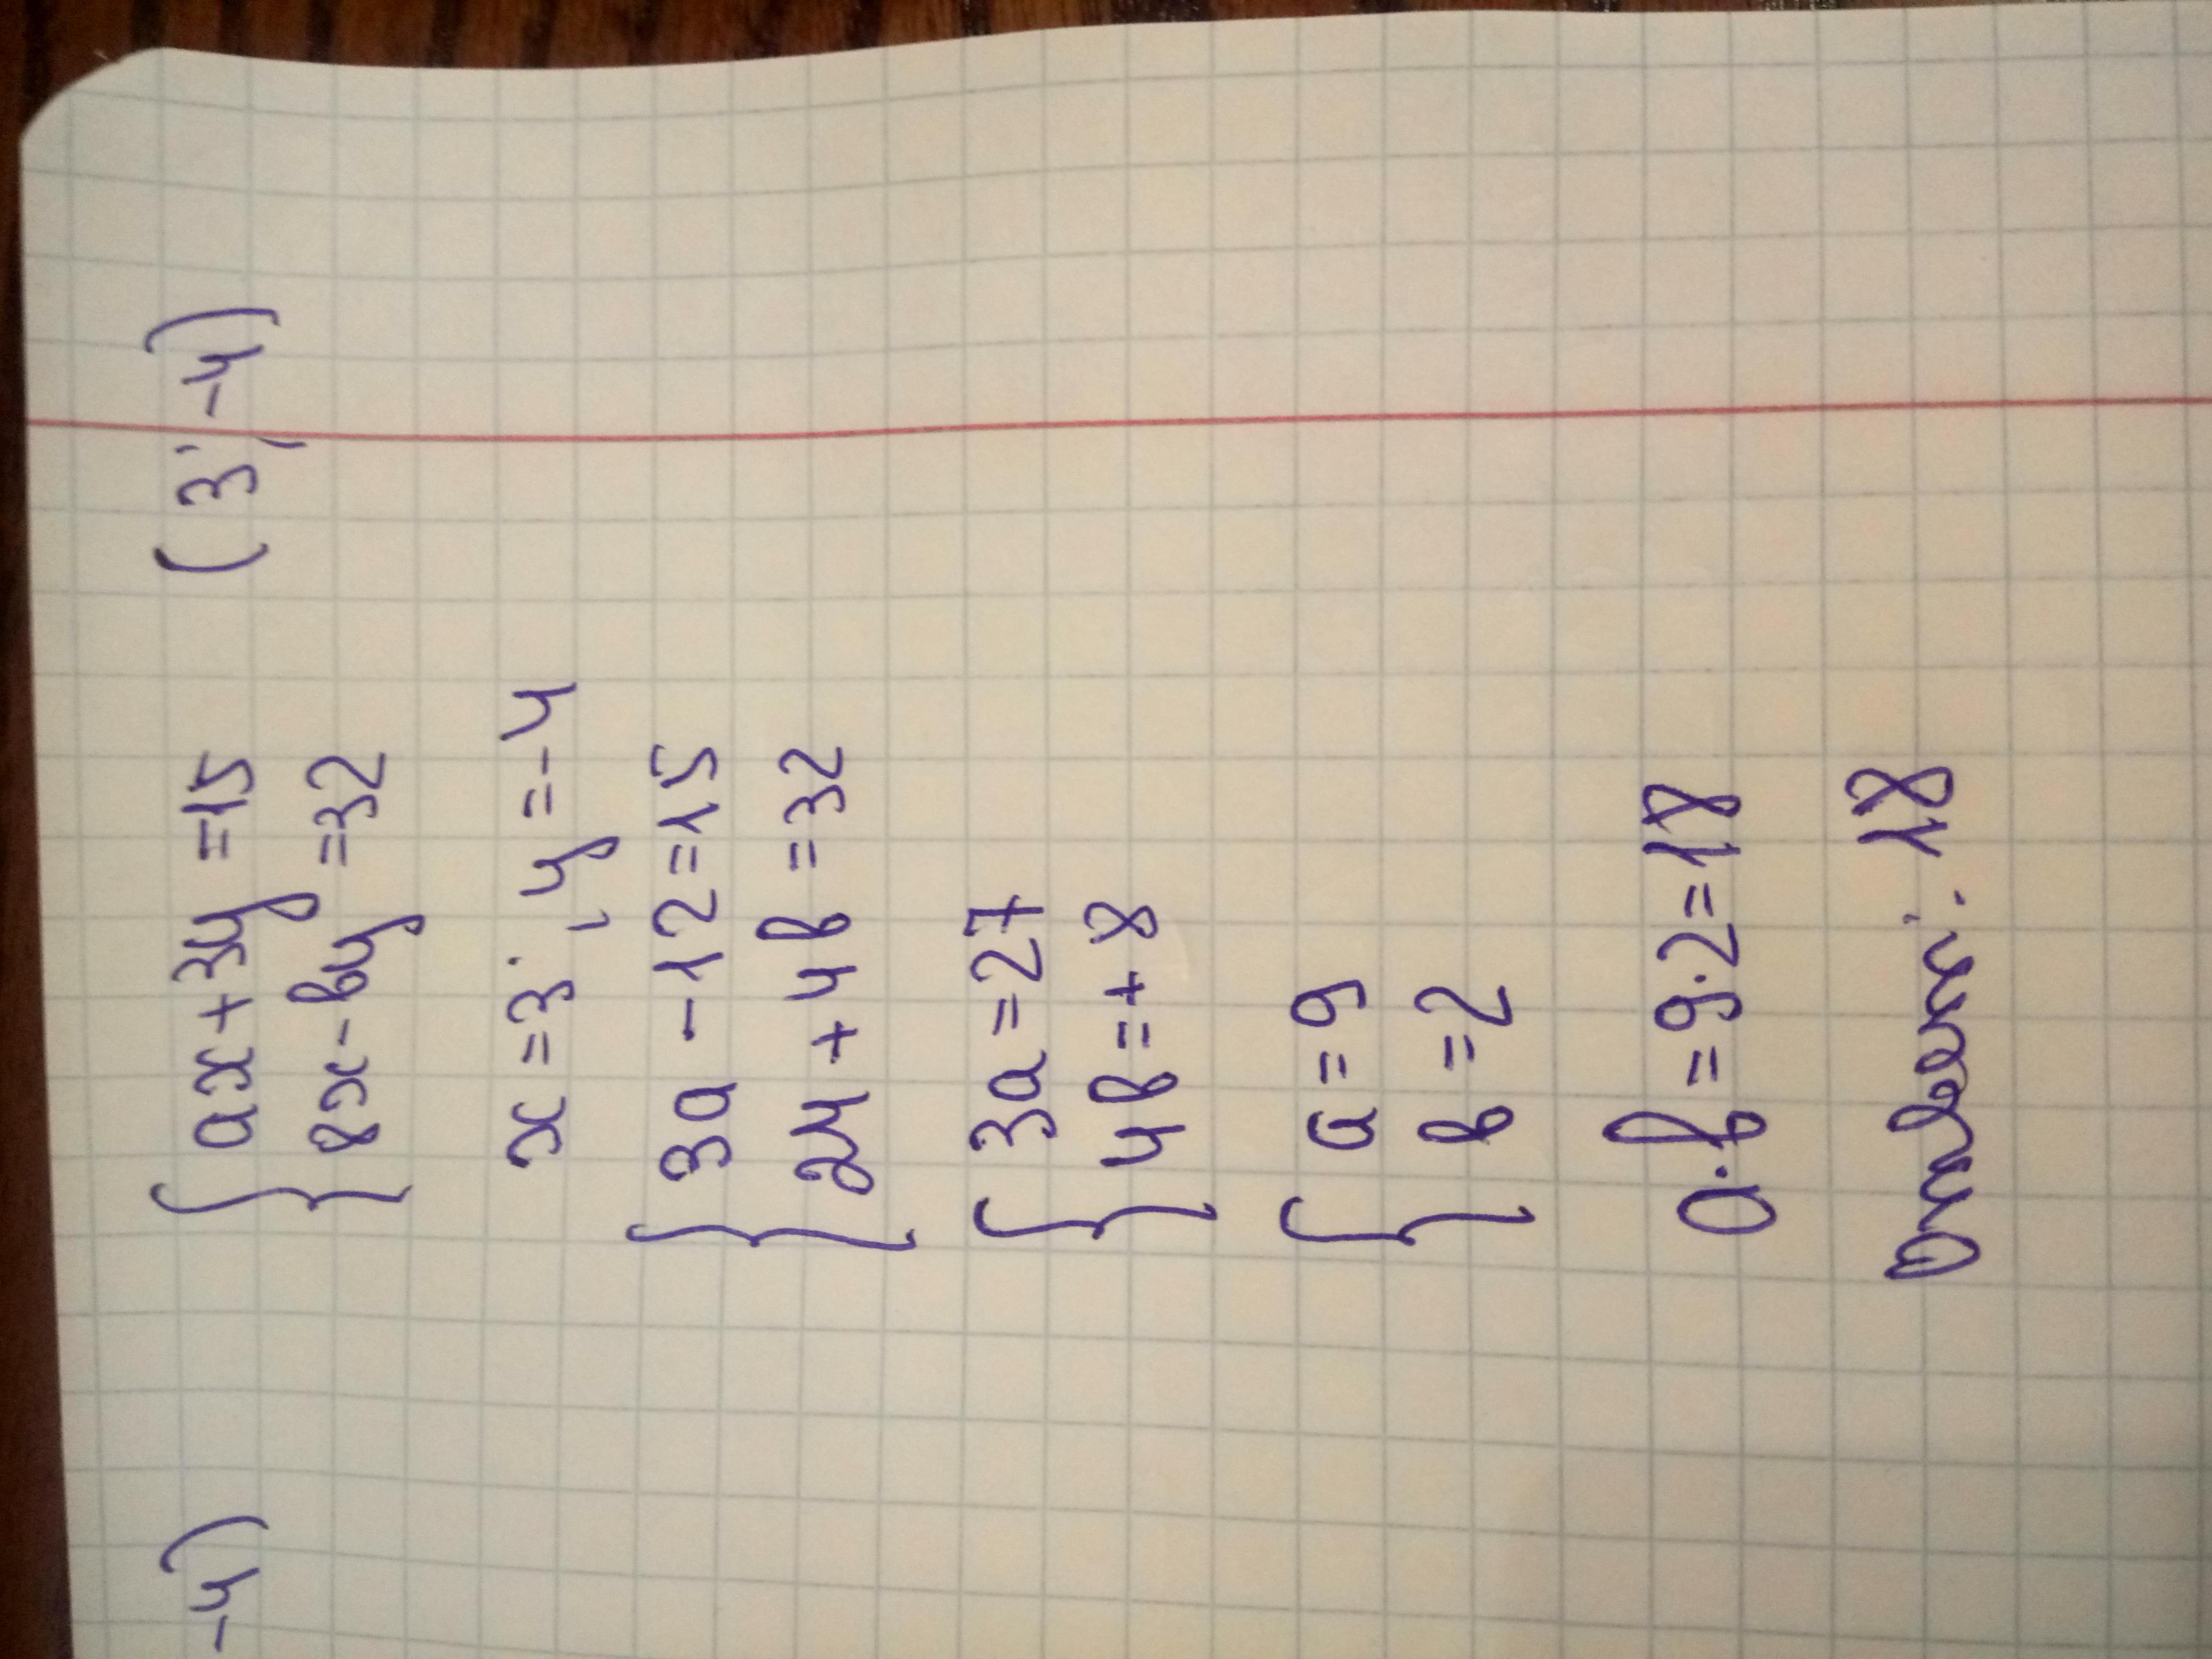 -4)
{ax+3y=15 (3;-4)
8x-вy=32
x=3; y=-4
{3a-12=15
24+4в=32
{3a=27
4в=+8
{a=9
в=2
a·в=9·2=18
Ответ: 18